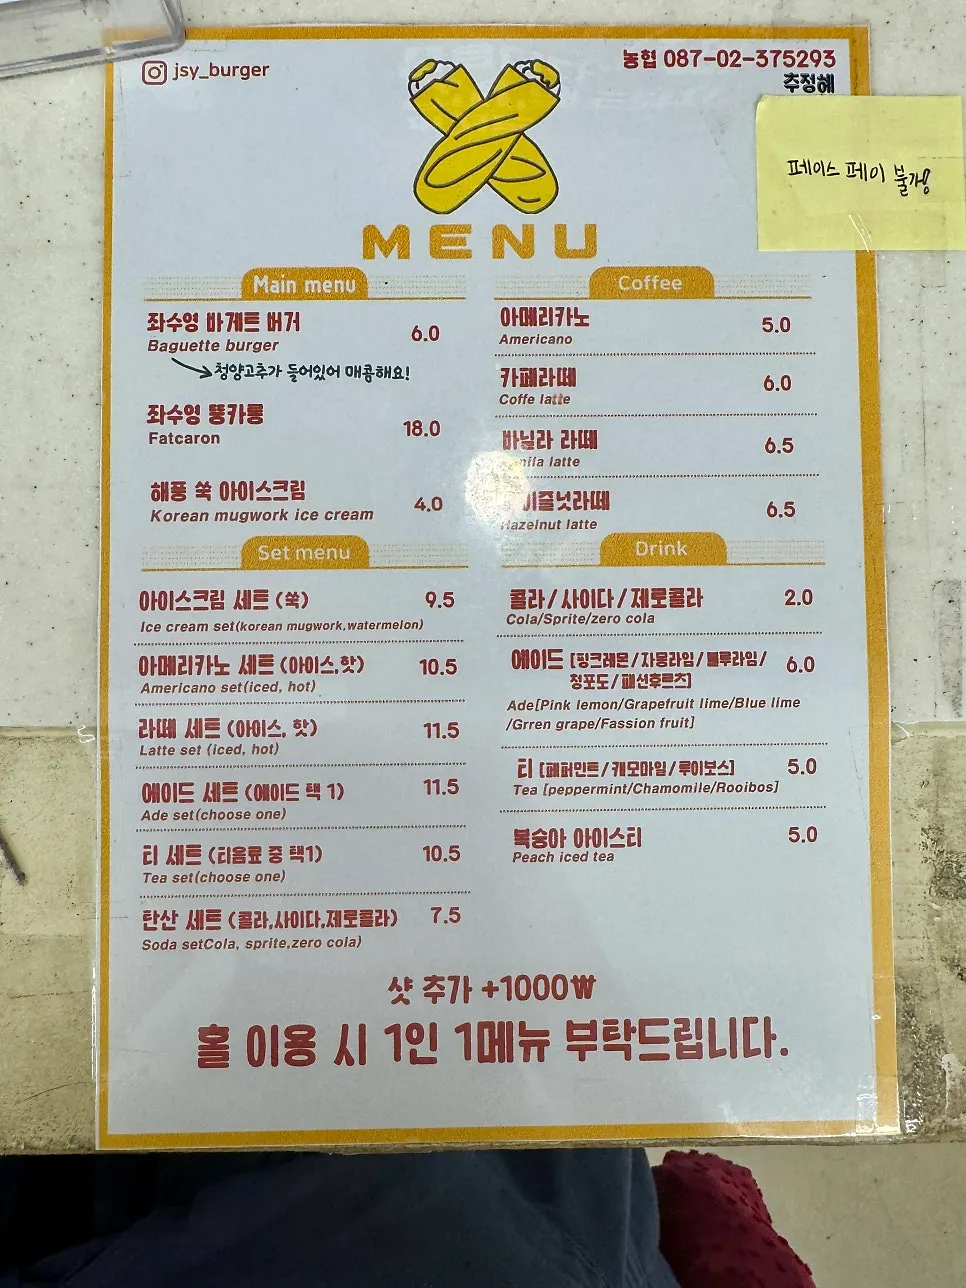 jsy_burger
농협 087-02-375293
추정혜
페이스 페이 불가!
MENU
Main menu
좌수영 바게트 버거 6.0
Baguette burger
청양고추가 들어있어 매콤해요!
좌수영 뚱카롱 18.0
Fatcaron
해풍 쑥 아이스크림 4.0
Korean mugwork ice cream
Set menu
아이스크림 세트 (쑥) 9.5
Ice cream set(korean mugwork,watermelon)
아메리카노 세트 (아이스,핫) 10.5
Americano set(iced, hot)
라떼 세트 (아이스, 핫) 11.5
Latte set (iced, hot)
에이드 세트 (에이드 택 1) 11.5
Ade set(choose one)
티 세트 (티음료 중 택1) 10.5
Tea set(choose one)
탄산 세트 (콜라,사이다,제로콜라) 7.5
Soda setCola, sprite,zero cola)
Coffee
아메리카노 5.0
Americano
카페라떼 6.0
Coffe latte
바닐라 라떼 6.5
latte
이즐넛라떼 6.5
Hazelnut latte
Drink
콜라/사이다/제로콜라 2.0
Cola/Sprite/zero cola
에이드 [핑크레몬/자몽라임/블루라임/ 6.0
청포도/패션후르츠]
Ade[Pink lemon/Grapefruit lime/Blue lime
/Grren grape/Fassion fruit]
티 [페퍼민트/캐모마일/루이보스] 5.0
Tea [peppermint/Chamomile/Rooibos]
복숭아 아이스티 5.0
Peach iced tea
샷 추가 +1000₩
홀 이용 시 1인 1메뉴 부탁드립니다.